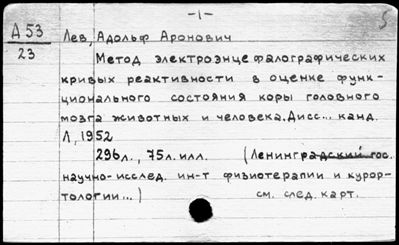 -1-
5
Д 53
23
Лев, Адольф Аронович
Метод электроэнцефалографических
кривых реактивности в оценке функ-
ционального состояния коры головного
мозга животных и человека. Дисс... канд.
Л, 1952
296л., 75л. илл. (Ленинградский гос.
научно-исслед. ин-т физиотерапии и курор-
тологии...) см. след. карт.